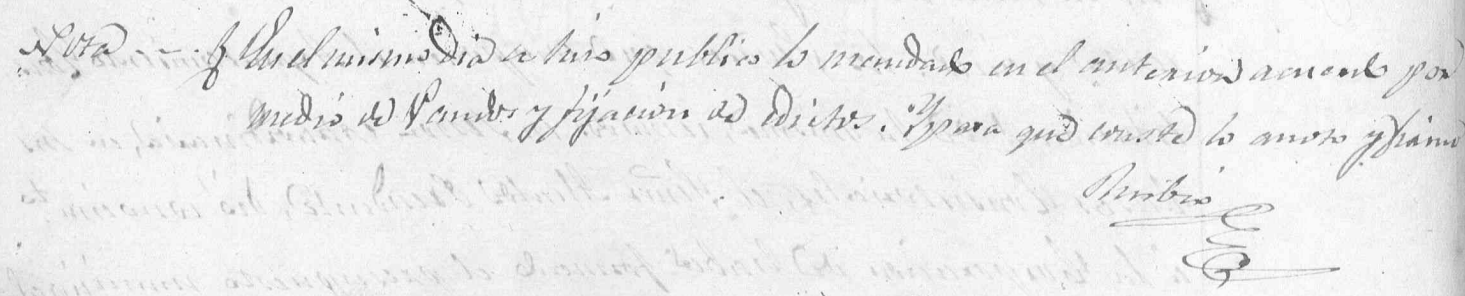 Nota. En el mismo dia se hizo publico lo mandado en el anterior acuerdo por
medio de Vandos y fijacion de edictos. Y para que conste lo anoto y firmo
Rubio